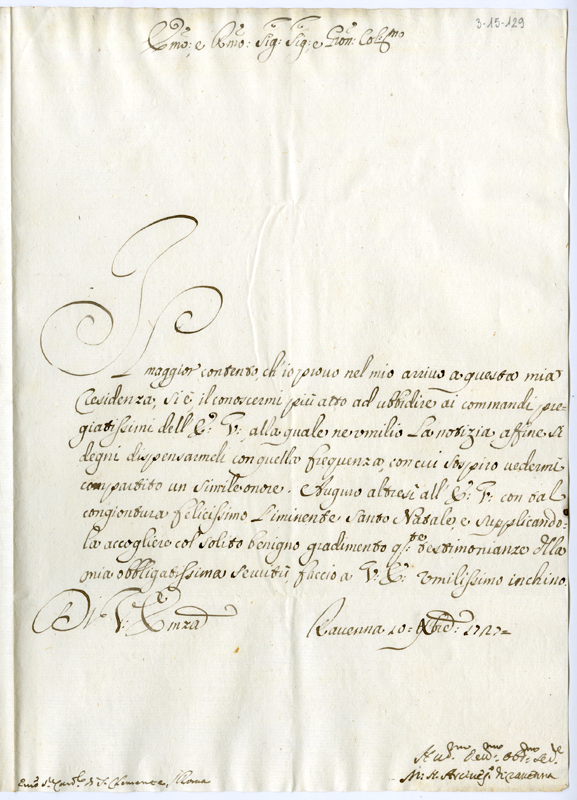 3-15-129
Emo: e Rmo: Sig: Sig: e Pron: Col:mo
Il
maggior contento, ch'io provo nel mio arrivo a questa mia
Residenza, si è il conoscermi più atto ad ubbidire ai commandi pre-
giatissimi dell'E: V:, alla quale ne umilio la notizia, affine si
degni dispensarmeli con quella frequenza, con cui sospiro vedermi
compartito un simile onore. Auguro altresì all'E: V: con tal
congiontura felicissimo l'iminente Santo Natale, e supplicando-
la accogliere col solito benigno gradimento q:te testimonianze della
mia obbligatissima servitù, faccio a V: E: umilissimo inchino.
Di V: Emza
Ravenna 10: Xbre: 1727=
Hu:mo Dev:mo Obb:mo Ser:
M: Arcives: di Ravenna
Emo Sr Card:le di S: Clemente, Roma